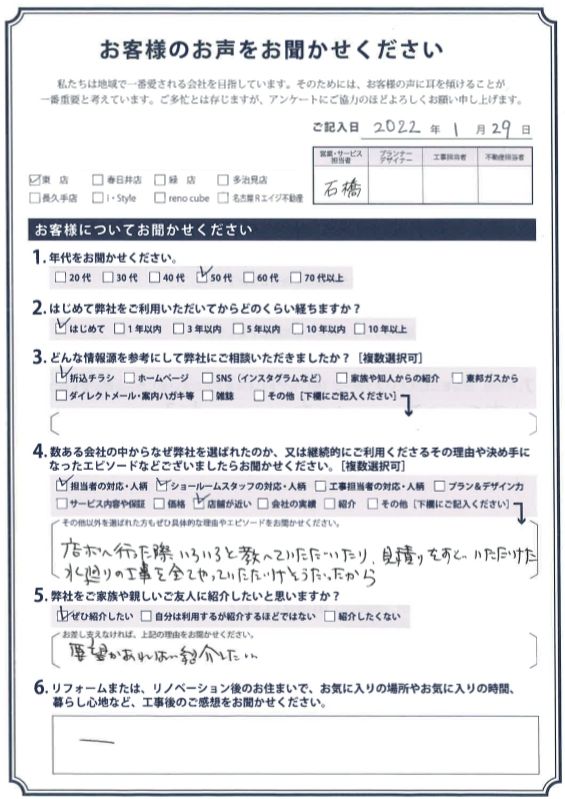 お客様のお声をお聞かせください
私たちは地域で一番愛される会社を目指しています。そのためには、お客様の声に耳を傾けることが
一番重要と考えています。ご多忙とは存じますが、アンケートにご協力のほどよろしくお願い申し上げます。
ご記入日 2022 年 1 月 29 日
営業・サービス担当者 プランナーデザイナー 工事担当者 不動産担当者
石橋
☑東 店 □春日井店 □緑 店 □多治見店
□長久手店 □i・Style □reno cube □名古屋Rエイジ不動産
お客様についてお聞かせください
1. 年代をお聞かせください。
□20代 □30代 □40代 ☑50代 □60代 □70代以上
2. はじめて弊社をご利用いただいてからどのくらい経ちますか？
☑はじめて □1年以内 □3年以内 □5年以内 □10年以内 □10年以上
3. どんな情報源を参考にして弊社にご相談いただきましたか？［複数選択可］
☑折込チラシ □ホームページ □SNS（インスタグラムなど） □家族や知人からの紹介 □東邦ガスから
□ダイレクトメール・案内ハガキ等 □雑誌 □その他［下欄にご記入ください］
4. 数ある会社の中からなぜ弊社を選ばれたのか、又は継続的にご利用くださるその理由や決め手に
なったエピソードなどございましたらお聞かせください。［複数選択可］
☑担当者の対応・人柄 ☑ショールームスタッフの対応・人柄 □工事担当者の対応・人柄 □プラン＆デザイン力
□サービス内容や保証 □価格 ☑店舗が近い □会社の実績 □紹介 □その他［下欄にご記入ください］
その他以外を選ばれた方もぜひ具体的な理由やエピソードをお聞かせください。
店舗へ行った際いろいろと教えていただいたり、見積りをすぐいただけた
水廻りの工事を全てやっていただけそうだったから
5. 弊社をご家族や親しいご友人に紹介したいと思いますか？
☑ぜひ紹介したい □自分は利用するが紹介するほどではない □紹介したくない
お差し支えなければ、上記の理由をお聞かせください。
要望があれば紹介したい
6. リフォームまたは、リノベーション後のお住まいで、お気に入りの場所やお気に入りの時間、
暮らし心地など、工事後のご感想をお聞かせください。
—